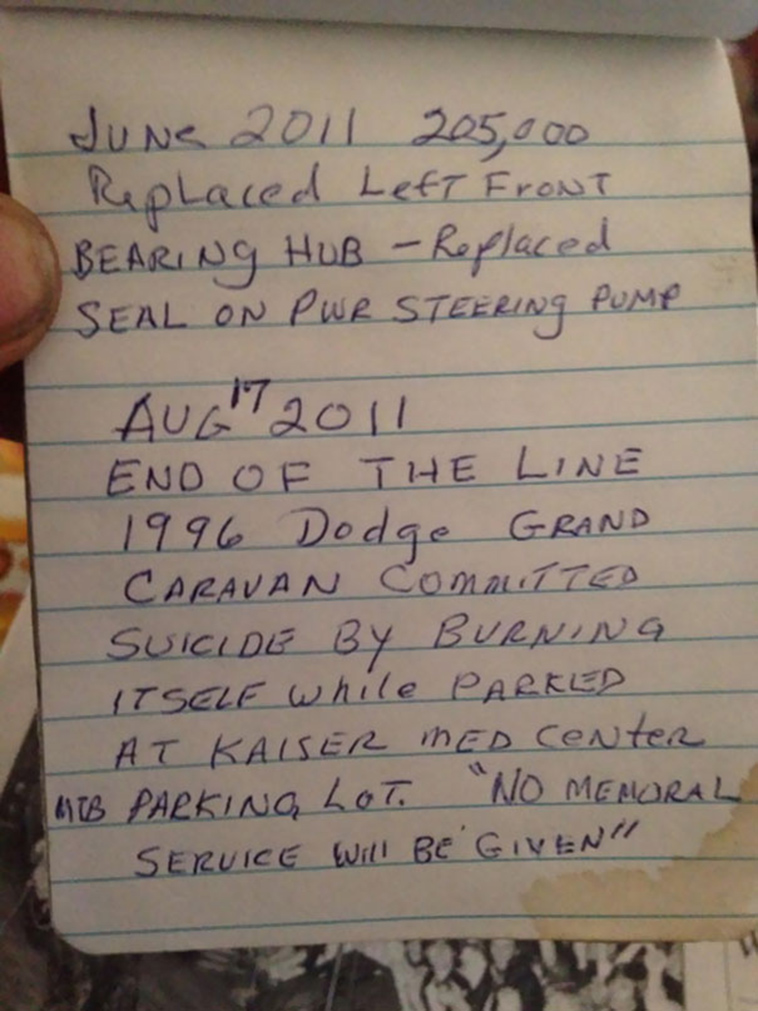 JUNE 2011 205,000
Replaced Left Front
BEARING HUB - Replaced
SEAL ON PWR STEERING PUMP
AUG 17 2011
END OF THE LINE
1996 Dodge GRAND
CARAVAN COMMITTED
SUICIDE BY BURNING
ITSELF while PARKED
AT KAISER MED CENTER
MOB PARKING LOT. "NO MEMORAL
SERVICE Will BE GIVEN"